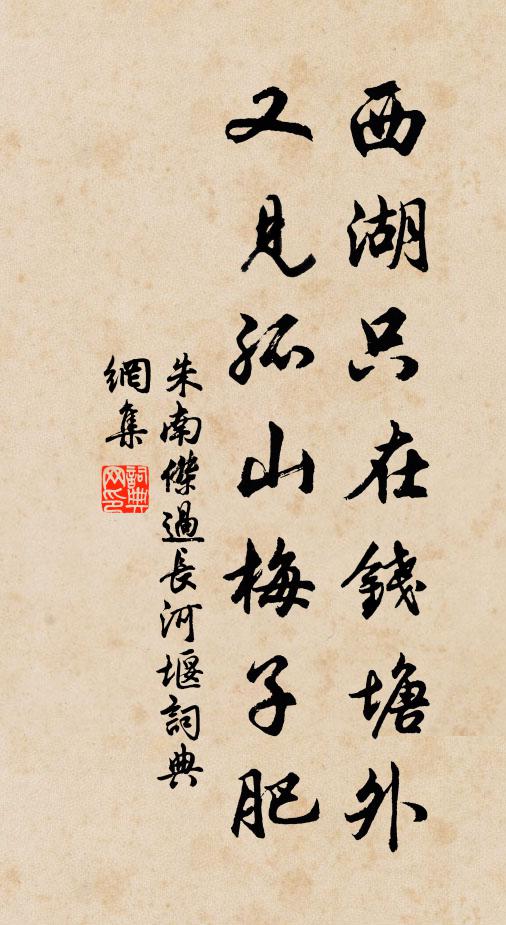 西湖只在錢塘外
又見孤山梅子肥
朱南傑過長河堰詞典
網集
詞典
网印